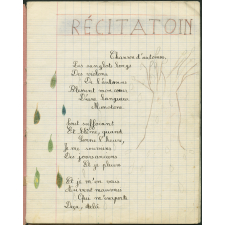 RÉCITATOIN
Chanson d'automne.
Les sanglots longs
Des violons
De l'automne
Blessent mon cœur
D'une langueur
Monotone
Tout suffocant
Et blême, quand
Sonne l'heure,
Je me souviens
Des jours anciens
Et je pleure
Et je m'en vais
Au vent mauvais
Qui m'emporte
Deçà, delà